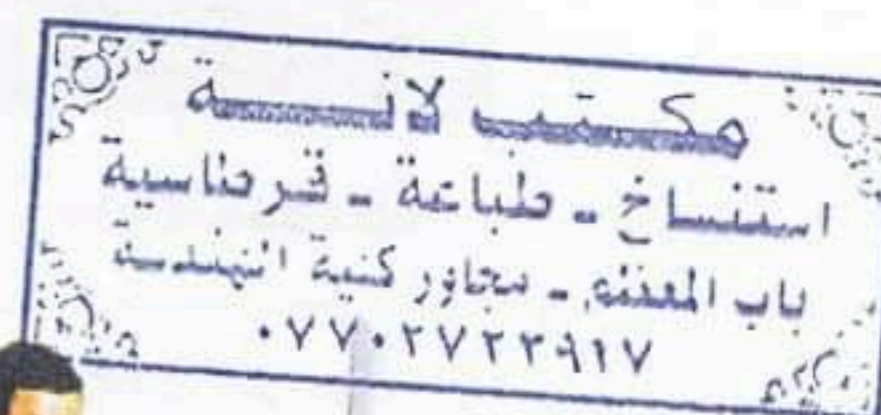 مكتب لانسة
استنساخ - طباعة - قرطاسية
باب المعظم - مجاور كلية الهندسة